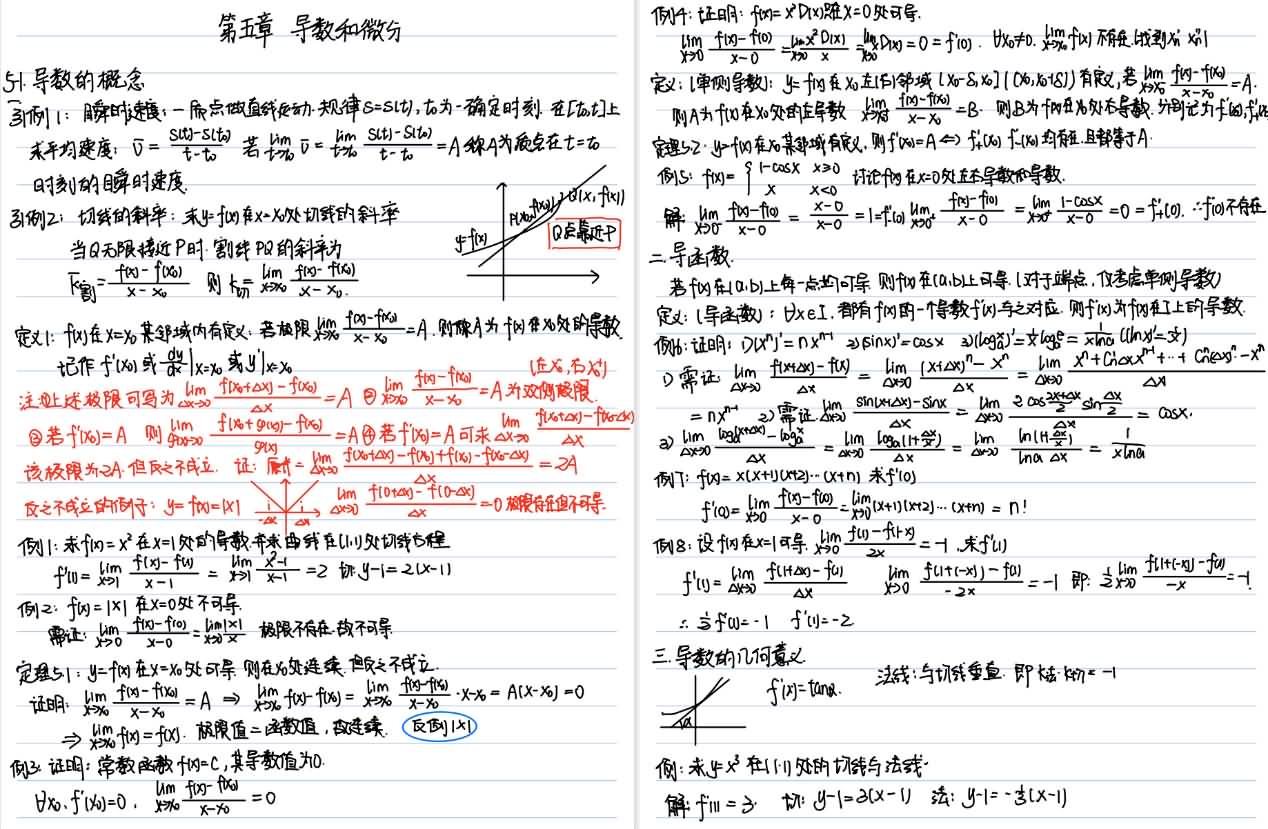 第五章 导数和微分
§1. 导数的概念
引例1: 瞬时速度: 一质点做直线运动. 规律 S=S(t), t₀为一确定时刻. 在[t₀,t]上
求平均速度: v̄ = (S(t)-S(t₀))/(t-t₀) 若 lim_{t→t₀} v̄ = lim_{t→t₀} (S(t)-S(t₀))/(t-t₀) = A 称A为质点在t=t₀
时刻的瞬时速度.
引例2: 切线的斜率: 求y=f(x)在x=x₀处切线的斜率
当Q无限接近P时. 割线PQ的斜率为
k̄割 = (f(x)-f(x₀))/(x-x₀) 则 k切 = lim_{x→x₀} (f(x)-f(x₀))/(x-x₀).
y=f(x) P(x₀,f(x₀)) Q(x,f(x))
Q点靠近P
定义1: f(x)在x=x₀某邻域内有定义, 若极限 lim_{x→x₀} (f(x)-f(x₀))/(x-x₀) = A. 则称A为f(x)在x₀处的导数
记作 f'(x₀) 或 dy/dx|x=x₀ 或 y'|x=x₀
注:①上述极限可写为 lim_{Δx→0} (f(x₀+Δx)-f(x₀))/Δx = A ② lim_{x→x₀} (f(x)-f(x₀))/(x-x₀) = A 为双侧极限. (左x₀⁻, 右x₀⁺)
③若f'(x₀)=A 则 lim_{φ(x)→0} (f(x₀+φ(x))-f(x₀))/φ(x) = A ④若f'(x₀)=A 可求 lim_{Δx→0} (f(x₀+Δx)-f(x₀-Δx))/Δx
该极限为2A. 但反之不成立. 证: 原式 = lim_{Δx→0} (f(x₀+Δx)-f(x₀)+f(x₀)-f(x₀-Δx))/Δx = 2A
反之不成立的例子: y=f(x)=|x| -Δx Δx lim_{Δx→0} (f(0+Δx)-f(0-Δx))/Δx = 0 极限存在但不可导.
例1: 求f(x)=x² 在x=1处的导数, 并求曲线在(1,1)处切线方程
f'(1) = lim_{x→1} (f(x)-f(1))/(x-1) = lim_{x→1} (x²-1)/(x-1) = 2 切: y-1=2(x-1)
例2: f(x)=|x| 在x=0处不可导.
需证: lim_{x→0} (f(x)-f(0))/(x-0) = lim_{x→0} |x|/x 极限不存在. 故不可导.
定理5.1: y=f(x)在x=x₀处可导. 则在x₀处连续. 但反之不成立.
证明: lim_{x→x₀} (f(x)-f(x₀))/(x-x₀) = A ⇒ lim_{x→x₀} f(x)-f(x₀) = lim_{x→x₀} (f(x)-f(x₀))/(x-x₀) · x-x₀ = A(x-x₀) = 0
⇒ lim_{x→x₀} f(x)=f(x). 极限值=函数值, 故连续. 反例|x|
例3: 证明: 常数函数f(x)=C, 其导数值为0.
∀x₀, f'(x₀)=0, lim_{x→x₀} (f(x)-f(x₀))/(x-x₀) = 0
例4: 证明: f(x)=x²D(x)只在x=0处可导.
lim_{x→0} (f(x)-f(0))/(x-0) = lim_{x→0} x²D(x)/x = lim_{x→0} xD(x) = 0 = f'(0). ∀x₀≠0. lim_{x→x₀} f(x) 不存在. (找到xn' xn'')
定义: (单侧导数): y=f(x)在x₀左(右)邻域 [x₀-δ,x₀] ((x₀,x₀+δ)) 有定义, 若 lim_{x→x₀⁻} (f(x)-f(x₀))/(x-x₀) = A.
则A为f(x)在x₀处的左导数 lim_{x→x₀⁺} (f(x)-f(x₀))/(x-x₀) = B. 则B为f(x)在x₀处右导数. 分别记为f'₋(x₀), f'₊(x₀)
定理5.2 y=f(x)在x₀某邻域有定义, 则f'(x₀)=A ⇔ f'₊(x₀) f'₋(x₀) 均存在. 且都等于A.
例5: f(x)= { 1-cosx x≥0
x x<0 讨论f(x)在x=0处左右导数和导数.
解: lim_{x→0⁻} (f(x)-f(0))/(x-0) = (x-0)/(x-0) = 1 = f'₋(0) lim_{x→0⁺} (f(x)-f(0))/(x-0) = lim_{x→0⁺} (1-cosx)/(x-0) = 0 = f'₊(0). ∴f'(0)不存在
二. 导函数.
若f(x)在(a,b)上每一点均可导. 则f(x)在(a,b)上可导. (对于端点, 仅考虑单侧导数)
定义: (导函数): ∀x∈I. 都有f(x)的一个导数f'(x)与之对应. 则f'(x)为f(x)在I上的导数.
例6: 证明: 1)(xⁿ)'=nxⁿ⁻¹ 2)(sinx)'=cosx 3)(logₐx)'=1/x logₐe = 1/(xlna) ((lnx)'=1/x)
1) 需证 lim_{Δx→0} (f(x+Δx)-f(x))/Δx = lim_{Δx→0} ((x+Δx)ⁿ-xⁿ)/Δx = lim_{Δx→0} (xⁿ+Cₙ¹Δx xⁿ⁻¹+…+Cₙⁿ(Δx)ⁿ-xⁿ)/Δx
= nxⁿ⁻¹ 2) 需证 lim_{Δx→0} (sin(x+Δx)-sinx)/Δx = lim_{Δx→0} (2cos((2x+Δx)/2) sin(Δx/2))/Δx = cosx.
3) lim_{Δx→0} (logₐ(x+Δx)-logₐx)/Δx = lim_{Δx→0} (logₐ(1+Δx/x))/Δx = lim_{Δx→0} (ln(1+Δx/x))/(lna Δx) = 1/(xlna)
例7: f(x)=x(x+1)(x+2)…(x+n) 求f'(0)
f'(0) = lim_{x→0} (f(x)-f(0))/(x-0) = lim_{x→0} (x+1)(x+2)…(x+n) = n!
例8: 设f(x)在x=1可导. lim_{x→0} (f(1)-f(1-x))/2x = -1 求f'(1)
f'(1) = lim_{Δx→0} (f(1+Δx)-f(1))/Δx lim_{x→0} (f(1+(-x))-f(1))/(-2x) = -1 即: ½ lim_{x→0} (f(1+(-x))-f(1))/(-x) = -1.
∴ ½f'(1)=-1 f'(1)=-2
三. 导数的几何意义.
f'(x)=tanα. 法线: 与切线垂直. 即 k法·k切=-1
α
例: 求y=x³ 在(1,1)处的切线与法线.
解: f'(1)=3. 切: y-1=3(x-1) 法: y-1=-⅓(x-1)